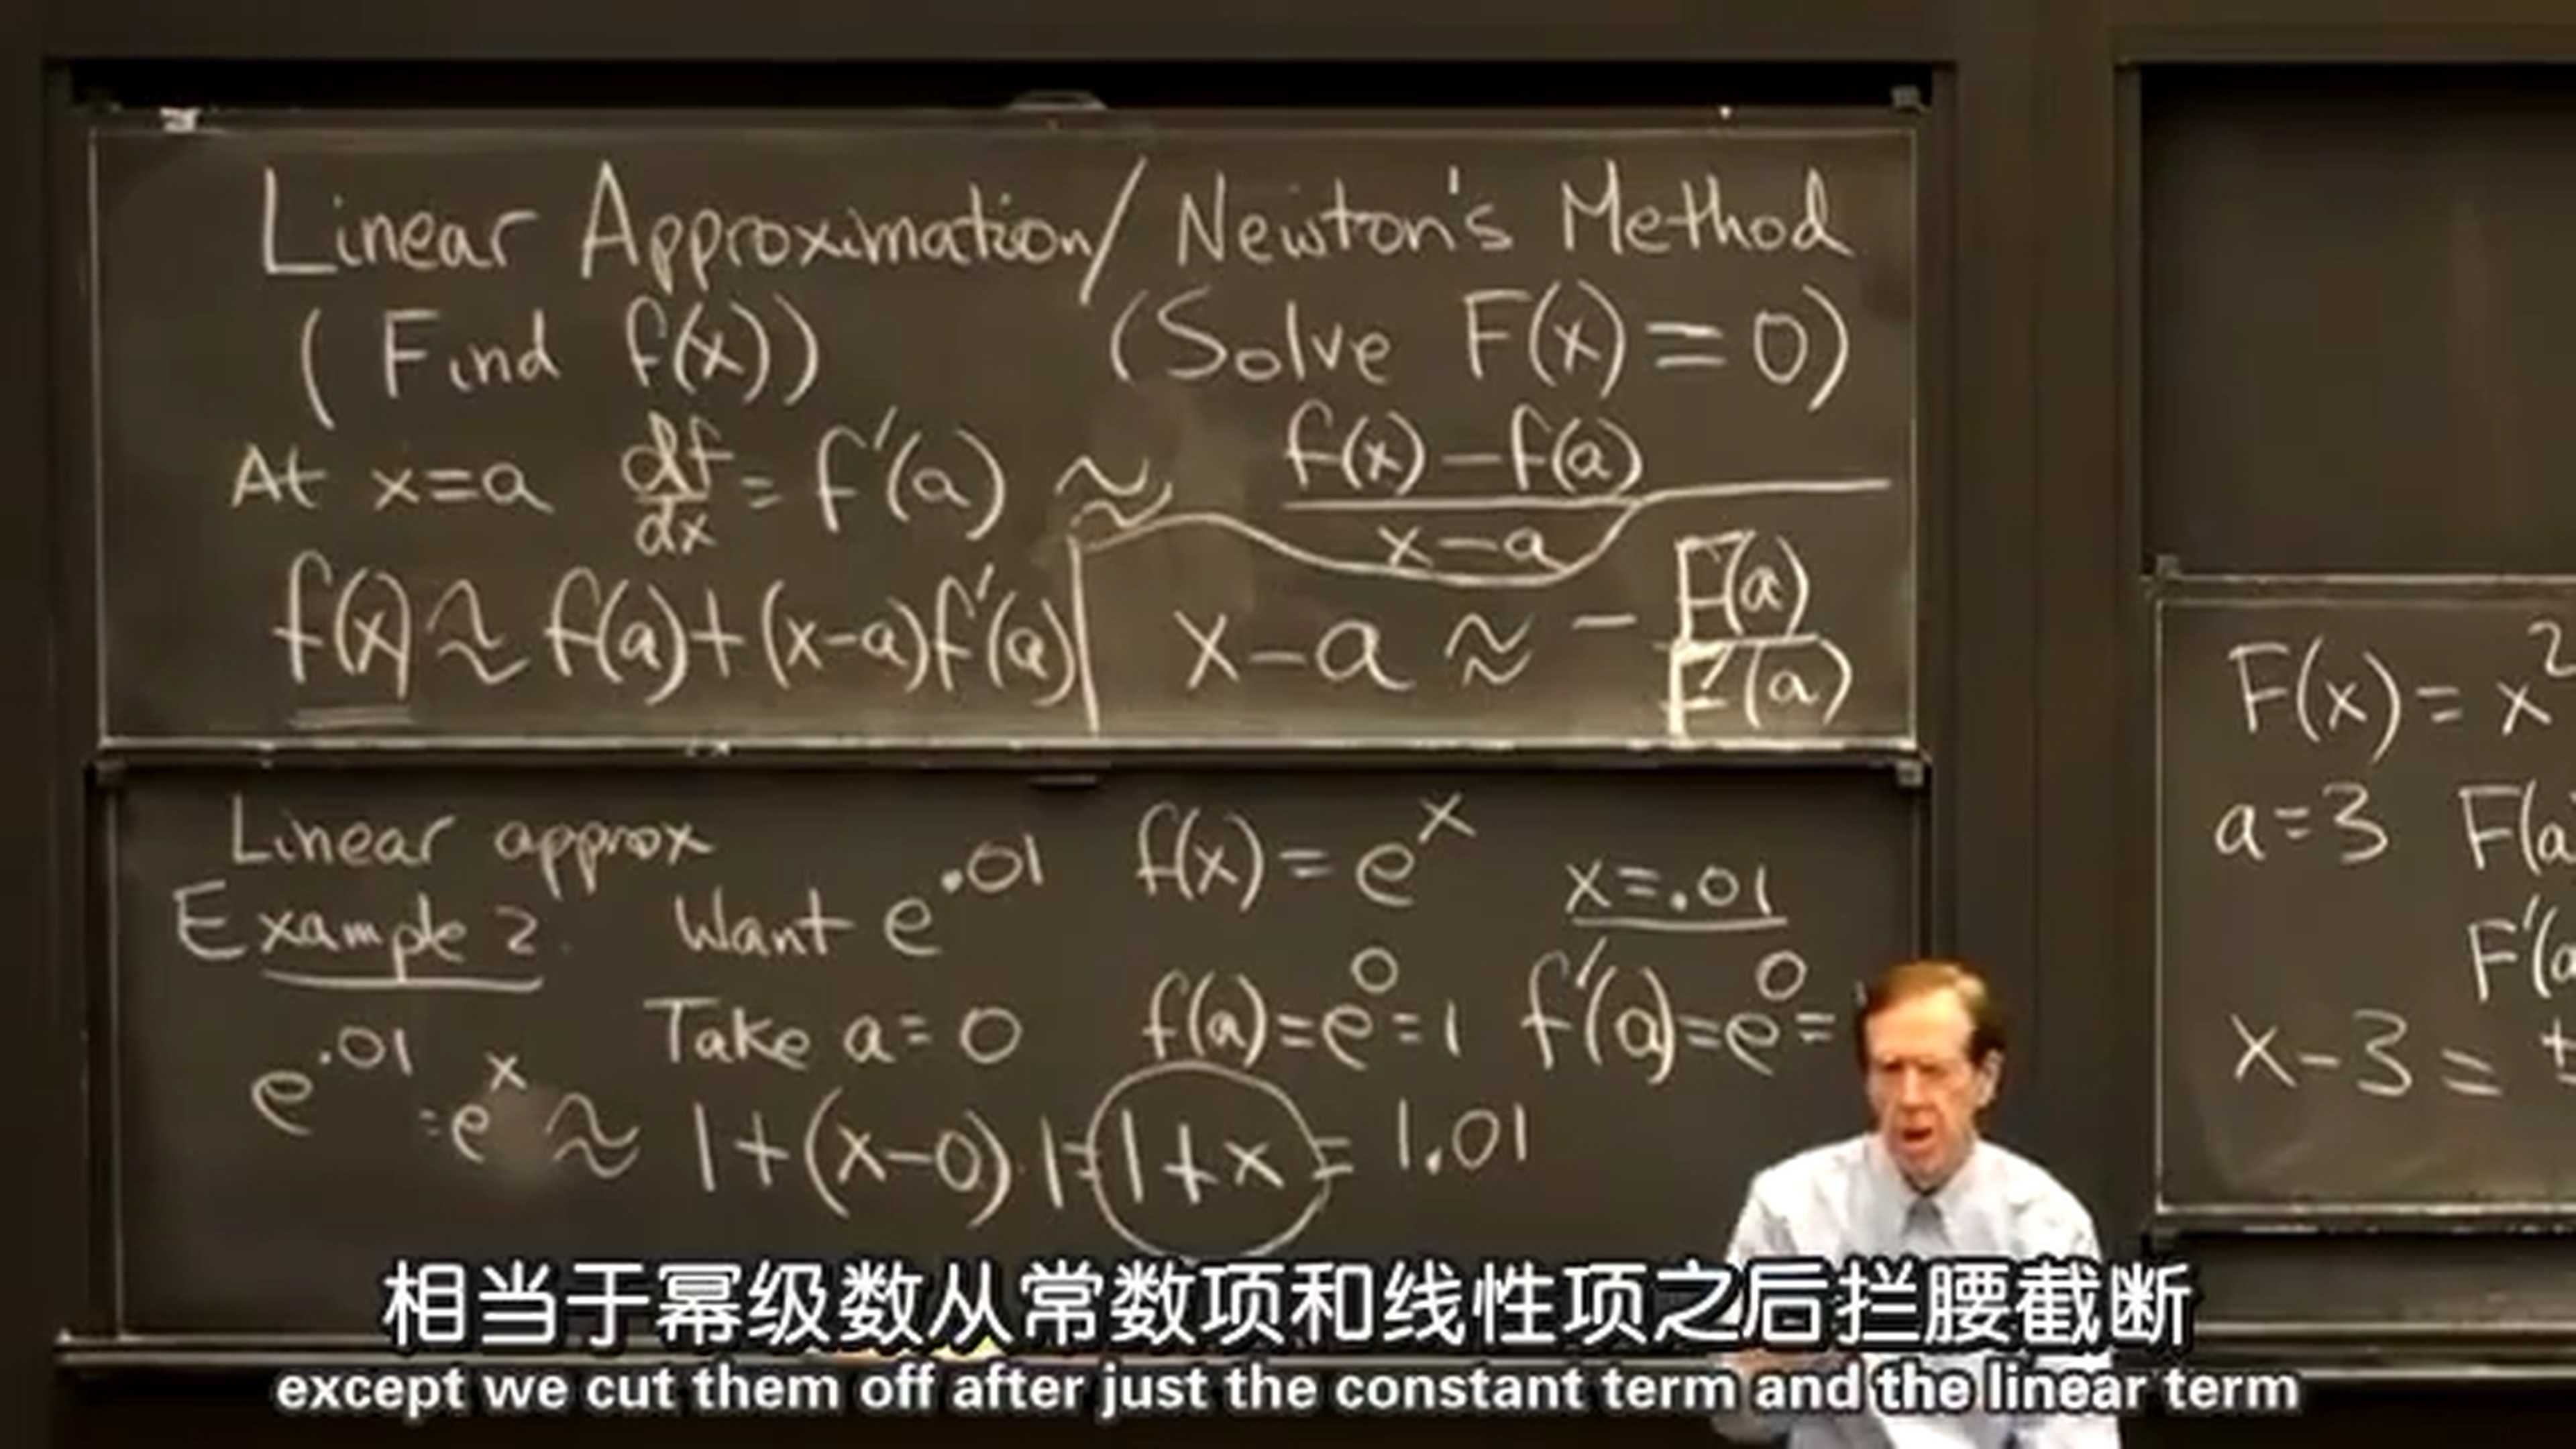 Linear Approximation/ Newton's Method
(Find f(x)) (Solve F(x)=0)
At x=a df/dx = f'(a) ≈ f(x)-f(a)/x-a
f(x) ≈ f(a)+(x-a)f'(a) x-a ≈ - F(a)/F'(a)
Linear approx
Example 2 Want e^.01 f(x)=e^x x=.01
Take a=0 f(a)=e^0=1 f'(a)=e^0=
e^.01 =e^x ≈ 1+(x-0)·1=1+x= 1.01
F(x)= x^2
a=3 F(a
F'(a
x-3=
相当于幂级数从常数项和线性项之后拦腰截断
except we cut them off after just the constant term and the linear term